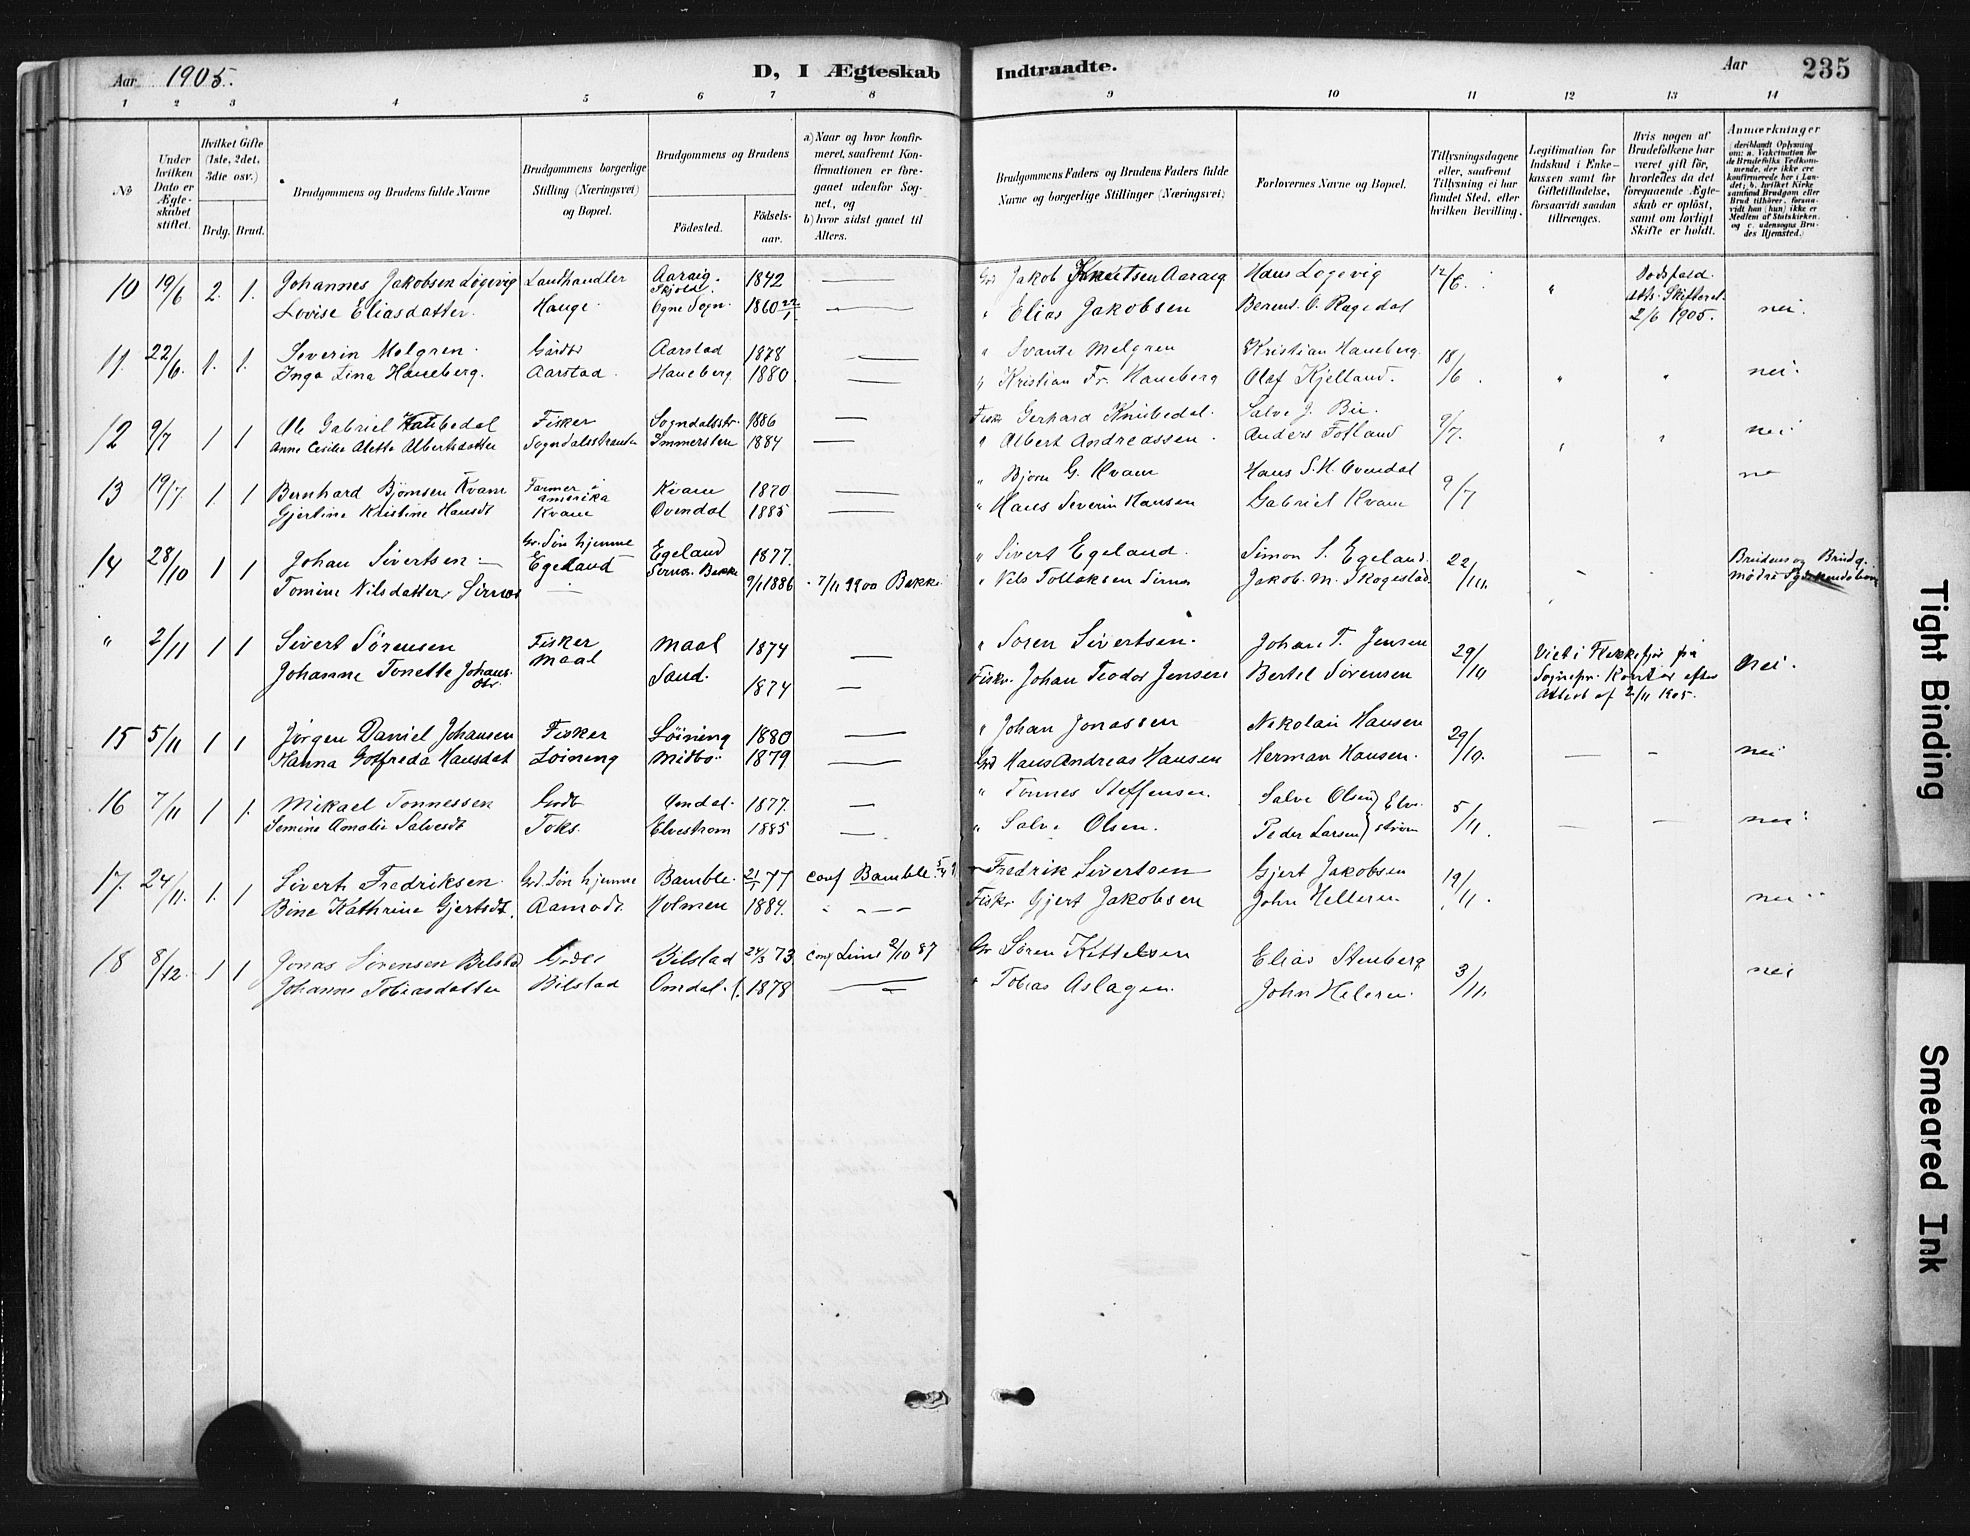 Aar 1905.
D, I Ægteskab Indtraadte.
Aar 235
1 2 3 4 5 6 7 8 9 10 11 12 13 14
№
Under hvilken Dato er Ægteskabet stiftet.
Hvilket Gifte (1ste, 2det, 3die osv.)
Brdg. Brud.
Brudgommens og Brudens fulde Navne
Brudgommens borgerlige Stilling (Næringsvei) og Bopæl.
Brudgommens og Brudens
Fødested.
Fødselsaar.
a) Naar og hvor konfirmeret, saafremt Konfirmationen er foregaaet udenfor Sognet, og
b) hvor sidst gaaet til Alters.
Brudgommens Faders og Brudens Faders fulde Navne og borgerlige Stillinger (Næringsvei)
Forlovernes Navne og Bopæl.
Tillysningsdagene eller, saafremt Tillysning ei har fundet Sted, efter hvilken Bevilling.
Legitimation for Indskud i Enkekassen samt for Giftetilladelse, forsaavidt saadan tiltrænges.
Hvis nogen af Brudefolkene har været gift før, hvorledes da det foregaaende Ægteskab er opløst, samt om lovligt Skifte er holdt.
Anmærkninger
10 19/6 2. 1. Johannes Jakobsen Løgevig Landhandler Aaraig Skjold. 1842 — Grd Jakob Knutsen Aaraig Hans Løgevig 12/6. " Dødsfald
Lovise Eliasdatter. Hauge. Ogne Sogn. 1860 22/1 — " Elias Jakobsen Berent O. Rægedal Skifteret 2/6 1905. nei.
11. 22/6. 1. 1. Severin Melgren. Gårdbr Aarstad 1878 — " Svante Melgren Kristian Haneberg. 18/6. " "
Inga Lina Haneberg. Aarstad. Haneberg 1880 — " Kristian Fr. Haneberg Olaf Kjelland. nei.
12 9/7 1 1 Ole Gabriel Knubedal Fisker Sogndalsstr. 1886 — Fisk Gerhard Knubedal. Salve J. Bie. 9/7. " "
Anne Cecilie Alette Albertsdatter Sogndalsstranden Immerstein 1884 — " Albert Andreassen. Anders Fotland nei
13 19/7 1 1 Bernhard Bjørnsen Kvam Farmer i amerika Kvam 1870 — " Bjørn G. Kvam Hans S. H. Ovendal 9/7
Gjertine Kristine Hansdt Kvam Ovendal 1885 — " Hans Severin Hansen Gabriel Kvam
14 28/10 1 1 Johan Sivertsen — Gr. Søn hjemme Egeland 1877. " Sivert Egeland. Simon S. Egeland. 22/10. Brudens og Brudg.
Tomine Nilsdatter Sirnes Egeland Sirnes. Bakke 9/1 1886 7/11 1900 Bakke " Nils Tollaksen Sirnes Jakob. M. Skogestad
" 2/11 1 1 Sivert Sørensen Fisker Maal 1874 — " Søren Sivertsen. Johan T. Jensen 29/10 Viet i Flekkefjor på
Johanne Tonette Johansdtr. Maal Sand. 1874 — Fisker. Johan Teodor Jensen Bertel Sørensen Sognepr. Kontor efter Attest af 2/11 1905. nei.
15 5/11 1 1 Jørgen Daniel Johansen Fisker Løining 1880 — " Johan Jonassen Nikolai Hansen 29/10.
Hanna Gotfreda Hansdat Løining Midbø. 1879 — Grd Hans Andreas Hansen Herman Hansen. — — nei
16 7/11 1 1. Mikael Tønnessen Grdt Omdal. 1877. — " Tønnes Steffensen. Salve Olsen } Elve- 5/11.
Semine Amalie Salvesdt Toks. Elvestrøm 1885 — " Salve Olsen. Peder Larsen } strøm — — nei.
17. 24/11. 1. 1. Sivert Fredriksen. Grd. Søn hjemme Bamble. 21/1 77 conf Bamble. — Fredrik Sivertsen Gjert Jakobsen 19/11.
Bine Kathrine Gjertsdt. Aamodt. Holmen 1884. " — Fisker Gjert Jakobsen John Helleren nei
18 8/12. 1 1 Jonas Sørensen Bilstad Grdb. Bilstad 24/3 73 conf Lund 2/10 87 Gr Søren Kittelsen Elias Stenberg 3/11.
Johanne Tobiasdatter Bilstad Omdal. 1878 — " Tobias Aslagsen. John Heleren. nei
Tight Binding
Smeared Ink